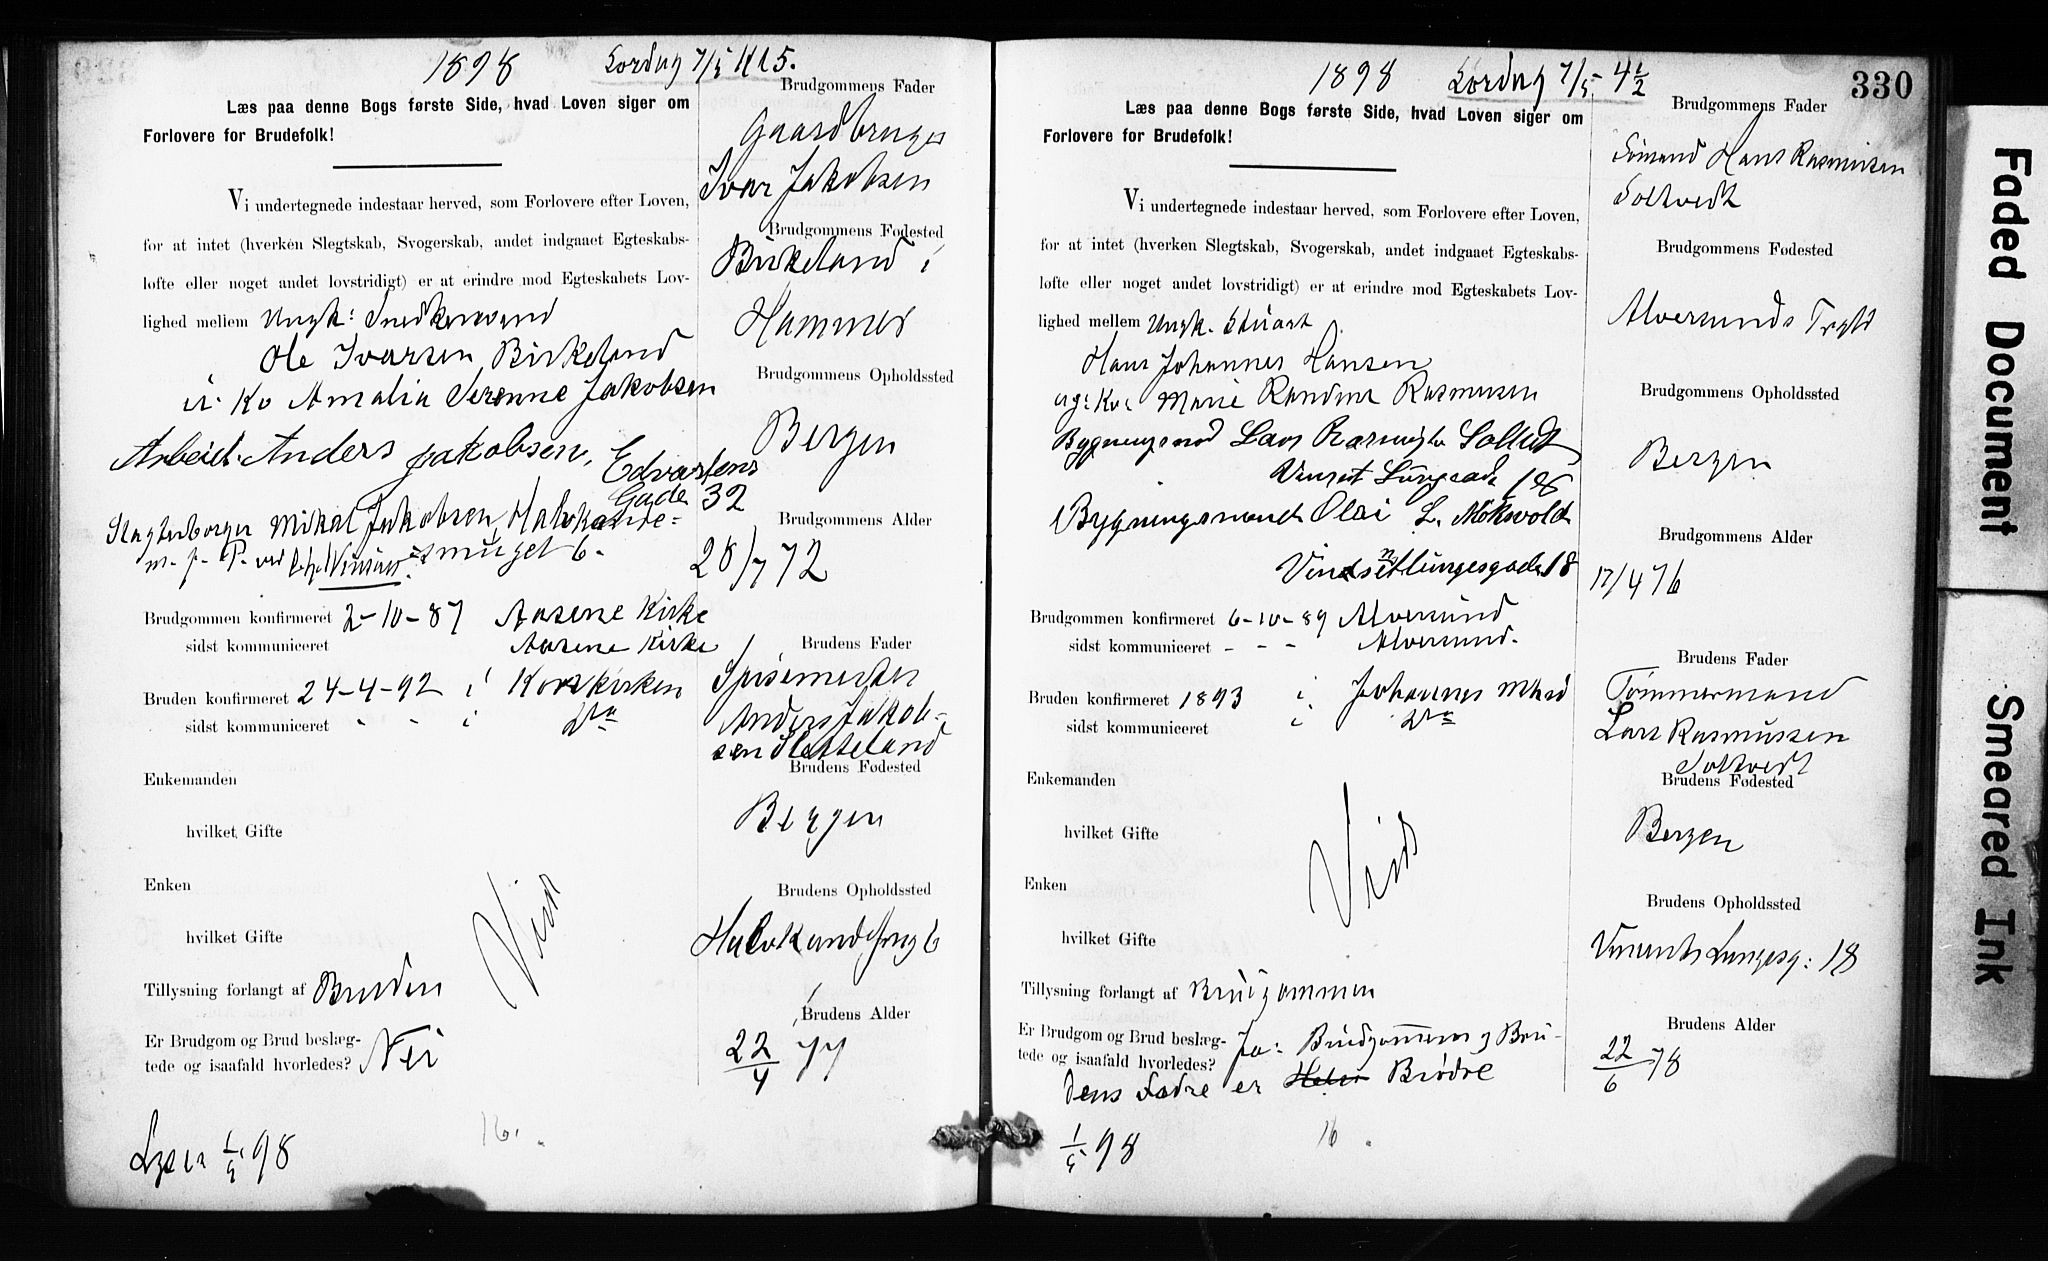 1898 Lørdag 7/5 Kl 5.
Læs paa denne Bogs første Side, hvad Loven siger om
Forlovere for Brudefolk!
Vi undertegnede indestaar herved, som Forlovere efter Loven,
for at intet (hverken Slegtskab, Svogerskab, andet indgaaet Egteskabs-
løfte eller noget andet lovstridigt) er at erindre mod Egteskabets Lov-
lighed mellem Ungk: Snedkersvend
Ole Ivarsen Birkeland
Amalia Serenne Jakobsen
Arbeid. Anders Jakobsen, Edvardsens
Gade 32
Mikal Jakobsen, Halvkande-
m. f. P. smuget 6.
Brudgommen konfirmeret 2-10-87 Aasene Kirke
sidst kommuniceret Aasene Kirke
Bruden konfirmeret 24-4-92 i Korskirken
sidst kommuniceret " " i
Enkemanden
hvilket Gifte
Enken
hvilket Gifte
Viet
Tillysning forlangt af Bruden
Er Brudgom og Brud beslæg-
tede og isaafald hvorledes? Nei
1/5 98
16.
Brudgommens Fader
Gaardbruger
Ivar Jakobsen
Brudgommens Fødested
Birkeland i
Hammer
Brudgommens Opholdssted
Bergen
Brudgommens Alder
28/7 72
Brudens Fader
Spisemester
Anders Jakob-
sen
Brudens Fødested
Bergen
Brudens Opholdssted
Halvkandesmug 6
Brudens Alder
22/4 77
1898 Lørdag 7/5 - 4 1/2
330
Læs paa denne Bogs første Side, hvad Loven siger om
Forlovere for Brudefolk!
Vi undertegnede indestaar herved, som Forlovere efter Loven,
for at intet (hverken Slegtskab, Svogerskab, andet indgaaet Egteskabs-
løfte eller noget andet lovstridigt) er at erindre mod Egteskabets Lov-
lighed mellem Ungk. Stuart
Hans Johannes Hansen
og: Ko: Marie Randine Rasmusen
Lars Rasmus
18
Bygningsmand Olai L. Mokvold
18
Brudgommen konfirmeret 6-10-89 Alversund
sidst kommuniceret - - - Alversund.
Bruden konfirmeret 1893 i Johannes
sidst kommuniceret i
Enkemanden
hvilket Gifte
Enken
hvilket Gifte
Viet
Tillysning forlangt af Brudgommen
Er Brudgom og Brud beslæg-
tede og isaafald hvorledes? Ja: Brudgommens og Bru-
dens Fædre er Brødre
1/5 98
16
Brudgommens Fader
Sømand Hans Rasmussen
Soltvedt
Brudgommens Fødested
Alversunds
Brudgommens Opholdssted
Bergen
Brudgommens Alder
17/4 76
Brudens Fader
Tømmermand
Lars Rasmussen
Soltvedt
Brudens Fødested
Bergen
Brudens Opholdssted
Vincents Lungesg: 18
Brudens Alder
22/6 78
Faded Document
Smeared Ink